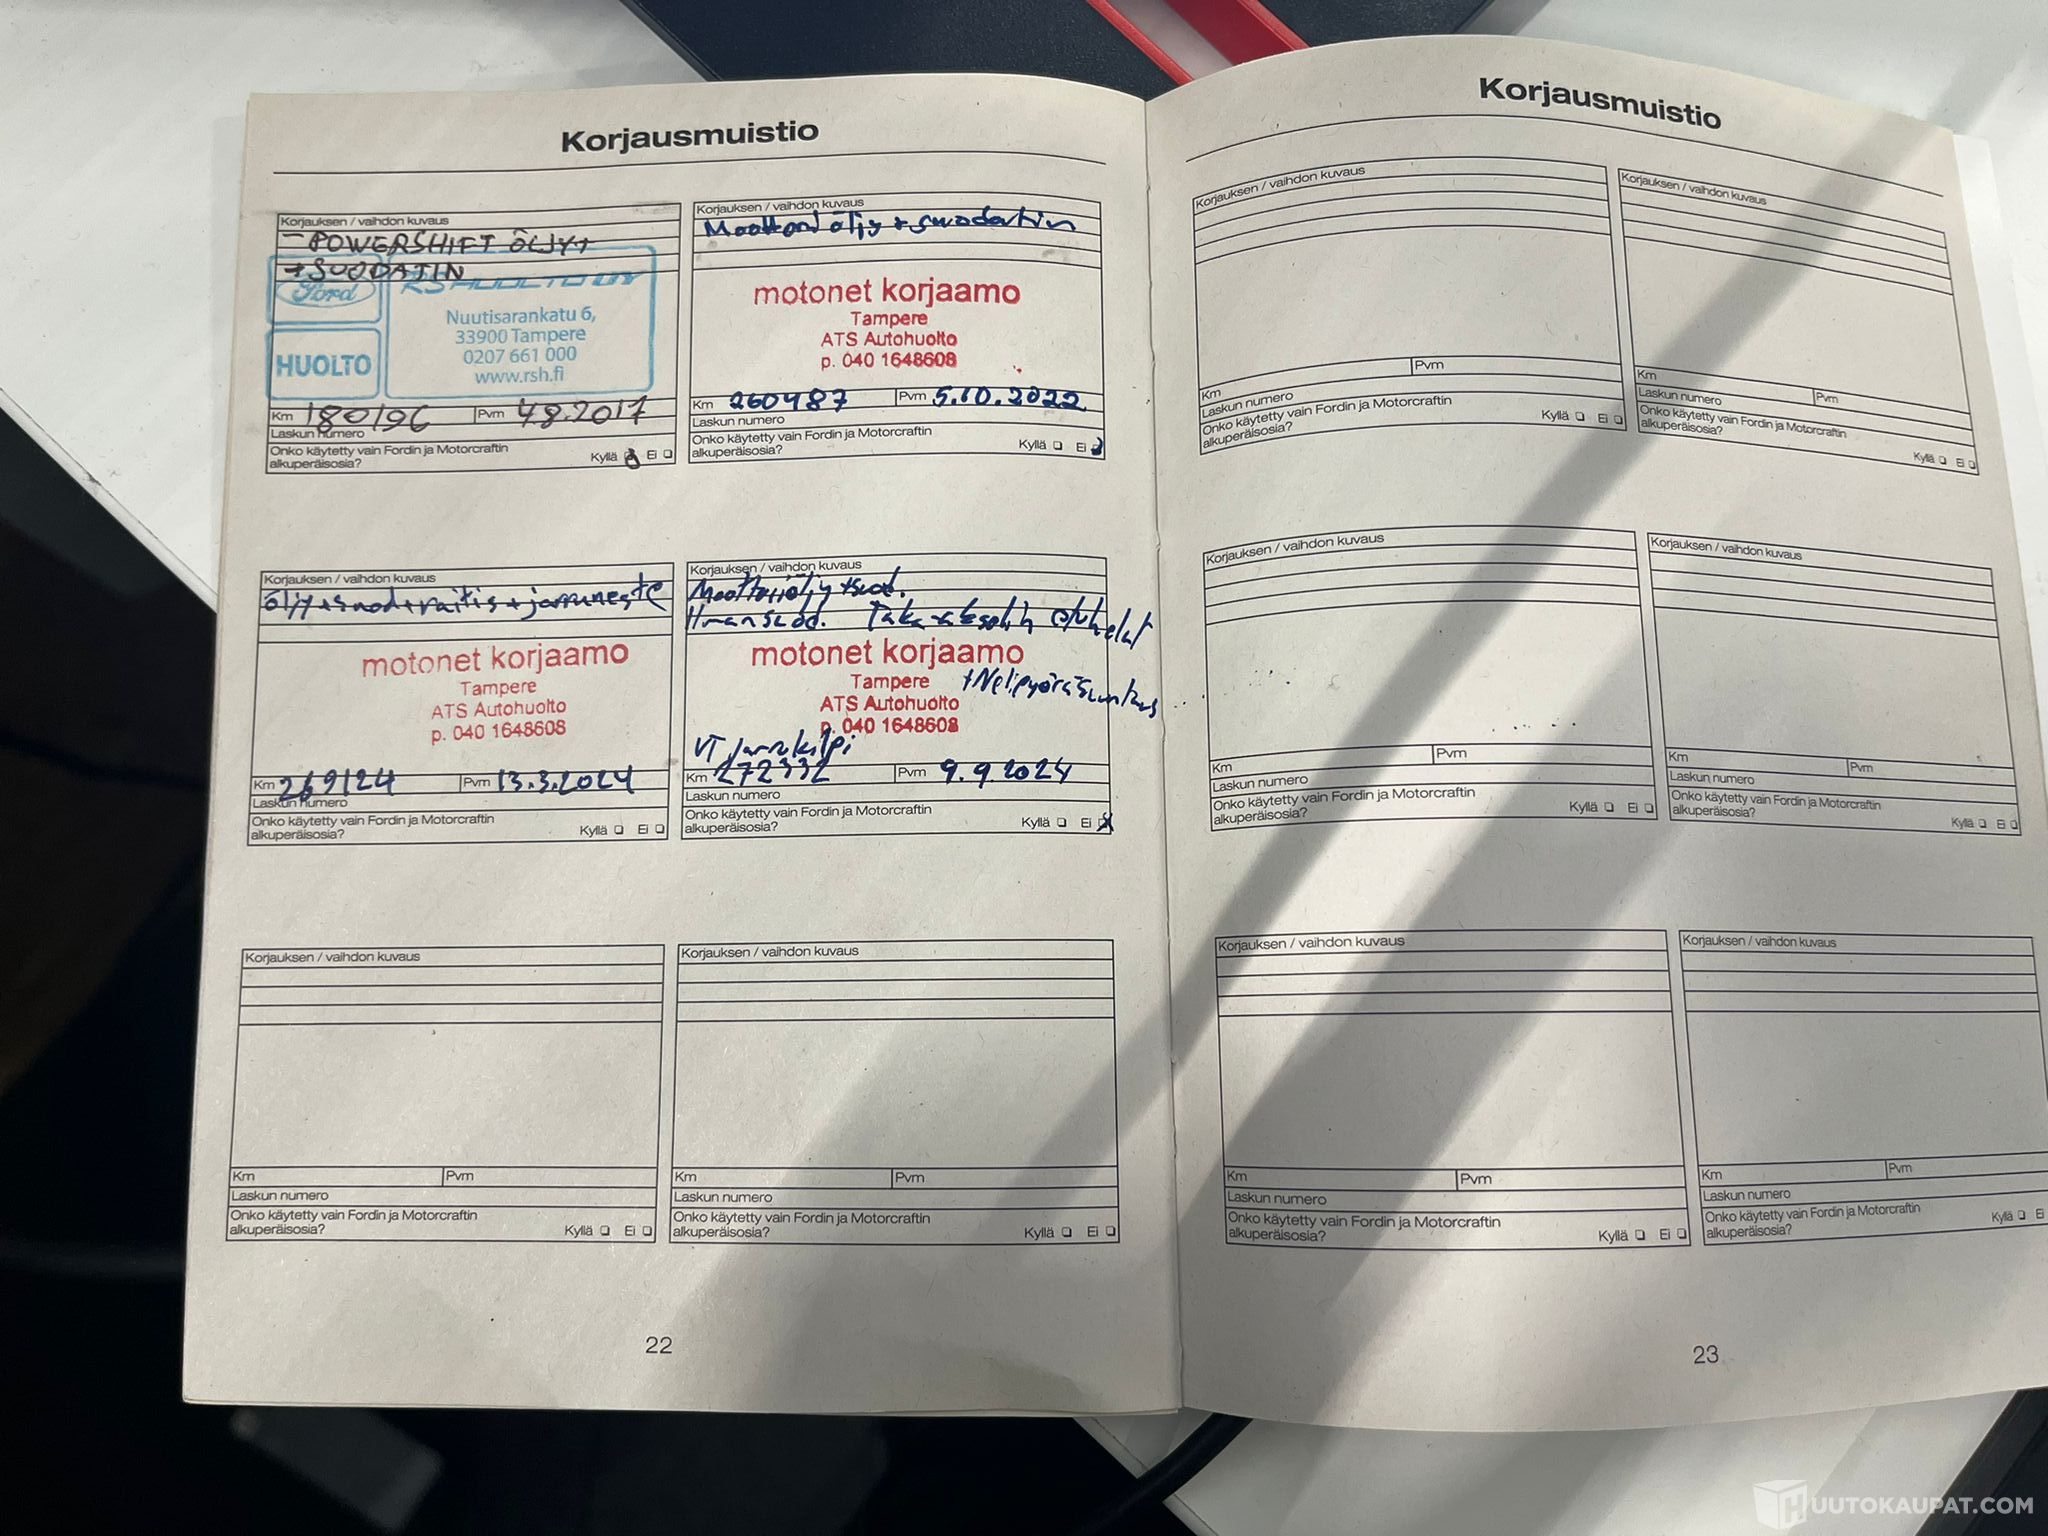 Korjausmuistio
Korjauksen / vaihdon kuvaus
- POWERSHIFT ÖLJYT
+ SUODATIN
Ford
HUOLTO
RS HUOLTO OY
Nuutisarankatu 6,
33900 Tampere
0207 661 000
www.rsh.fi
Km 180196 Pvm 4.8.2017
Laskun numero
Onko käytetty vain Fordin ja Motorcraftin
alkuperäisosia? Kyllä Ei
Korjauksen / vaihdon kuvaus
Moottoriöljy + suodatin
motonet korjaamo
Tampere
ATS Autohuolto
p. 040 1648608
Km 260487 Pvm 5.10.2022
Laskun numero
Onko käytetty vain Fordin ja Motorcraftin
alkuperäisosia? Kyllä Ei
Korjauksen / vaihdon kuvaus
öljy+suod+raitis+jarruneste
motonet korjaamo
Tampere
ATS Autohuolto
p. 040 1648608
Km 269124 Pvm 13.3.2024
Laskun numero
Onko käytetty vain Fordin ja Motorcraftin
alkuperäisosia? Kyllä Ei
Korjauksen / vaihdon kuvaus
Moottoriöljy +suod.
Ilmansuod. Taka-akselin
motonet korjaamo
Tampere +Nelipyöräsuuntaus
ATS Autohuolto
p. 040 1648608
VT jarrukilpi
Km 272332 Pvm 9.9.2024
Laskun numero
Onko käytetty vain Fordin ja Motorcraftin
alkuperäisosia? Kyllä Ei
Korjauksen / vaihdon kuvaus
Km Pvm
Laskun numero
Onko käytetty vain Fordin ja Motorcraftin
alkuperäisosia? Kyllä Ei
Korjauksen / vaihdon kuvaus
Km Pvm
Laskun numero
Onko käytetty vain Fordin ja Motorcraftin
alkuperäisosia? Kyllä Ei
22
Korjausmuistio
Korjauksen / vaihdon kuvaus
Km Pvm
Laskun numero
Onko käytetty vain Fordin ja Motorcraftin
alkuperäisosia? Kyllä Ei
Korjauksen / vaihdon kuvaus
Km Pvm
Laskun numero
Onko käytetty vain Fordin ja Motorcraftin
alkuperäisosia? Kyllä Ei
Korjauksen / vaihdon kuvaus
Km Pvm
Laskun numero
Onko käytetty vain Fordin ja Motorcraftin
alkuperäisosia? Kyllä Ei
Korjauksen / vaihdon kuvaus
Km Pvm
Laskun numero
Onko käytetty vain Fordin ja Motorcraftin
alkuperäisosia? Kyllä Ei
Korjauksen / vaihdon kuvaus
Km Pvm
Laskun numero
Onko käytetty vain Fordin ja Motorcraftin
alkuperäisosia? Kyllä Ei
Korjauksen / vaihdon kuvaus
Km Pvm
Laskun numero
Onko käytetty vain Fordin ja Motorcraftin
alkuperäisosia? Kyllä Ei
23
HUUTOKAUPAT.COM